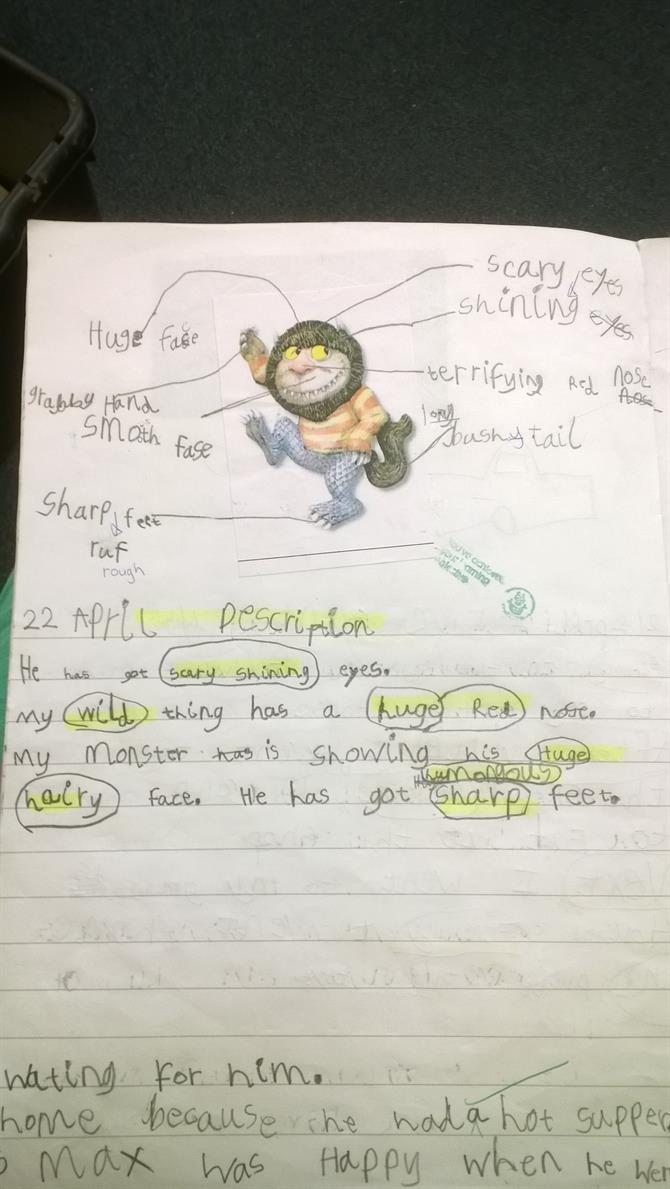 scary eyes
shining eyes
Huge face
terrifying Red nose
nose
grabby Hand
long
bushy tail
SMoth fase
Sharp feet
ruf
rough
You've achieved
your learning
objective
22 April Description
He has got scary shining eyes.
My wild thing has a huge Red nose.
My Monster has is showing his Huge
humongous
hairy face. He has got sharp feet.
wating for him.
home because he had a hot supper
Max was Happy when he wen